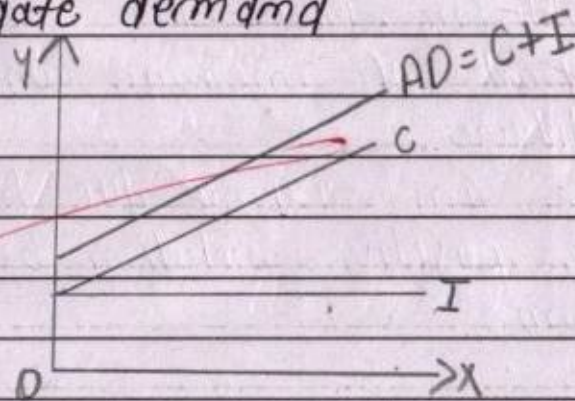 gate demand
Y
AD = C+I
C
I
O
X